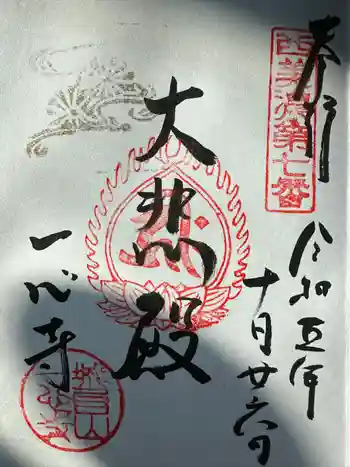 奉拝
西美濃第七番
令和五年
十月廿六日
大悲殿
一心寺